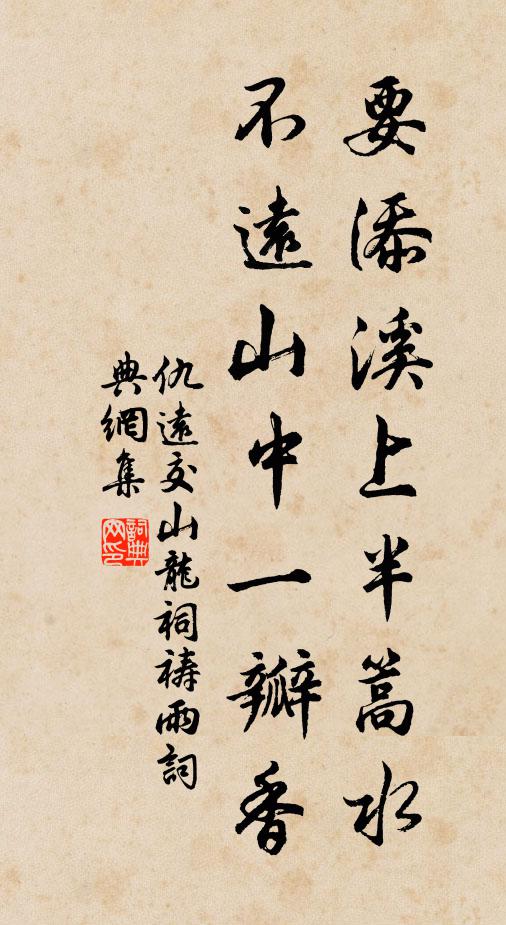 要添溪上半篙水
不遠山中一瓣香
仇遠交山龍祠禱雨詞
典網集
詞典網印